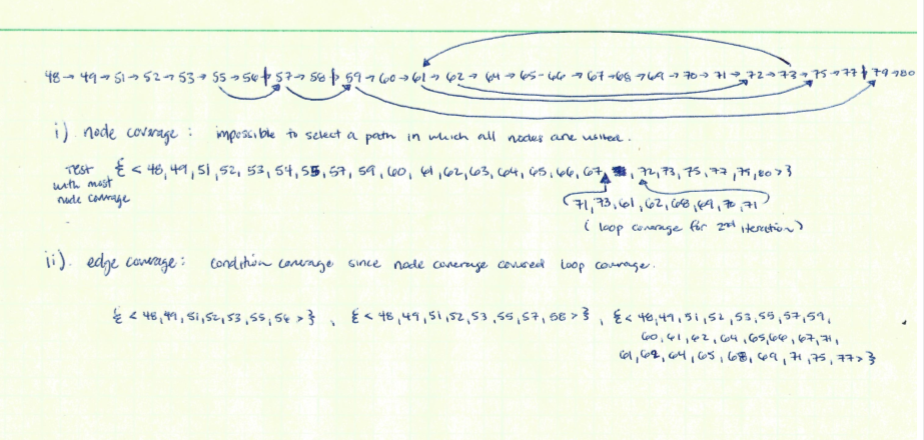 48→ 49→ 51→ 52→ 53→ 55→ 56 57→ 58 59→ 60→ 61→ 62→ 64→ 65-66→ 67→68→ 69→ 70→ 71→ 72→ 73→ 75→ 77 79→80
i). node coverage : impossible to select a path in which all nodes are visited.
Test with most node coverage
{ < 48,49,51,52,53,54,55,57,59,60,61,62,63,64,65,66,67, 72,73,75,77,79,80>}
71,73,61,62,68,69,70,71
( loop coverage for 2nd iteration)
ii). edge coverage: condition coverage since node coverage covered loop coverage.
{ < 48,49,51,52,53,55,56 >} , { < 48,49,51,52,53,55,57,58 >} , { < 48,49,51,52,53,55,57,59,
60,61,62,64,65,66,67,71,
61,62,64,65,68,69,71,75,77>}